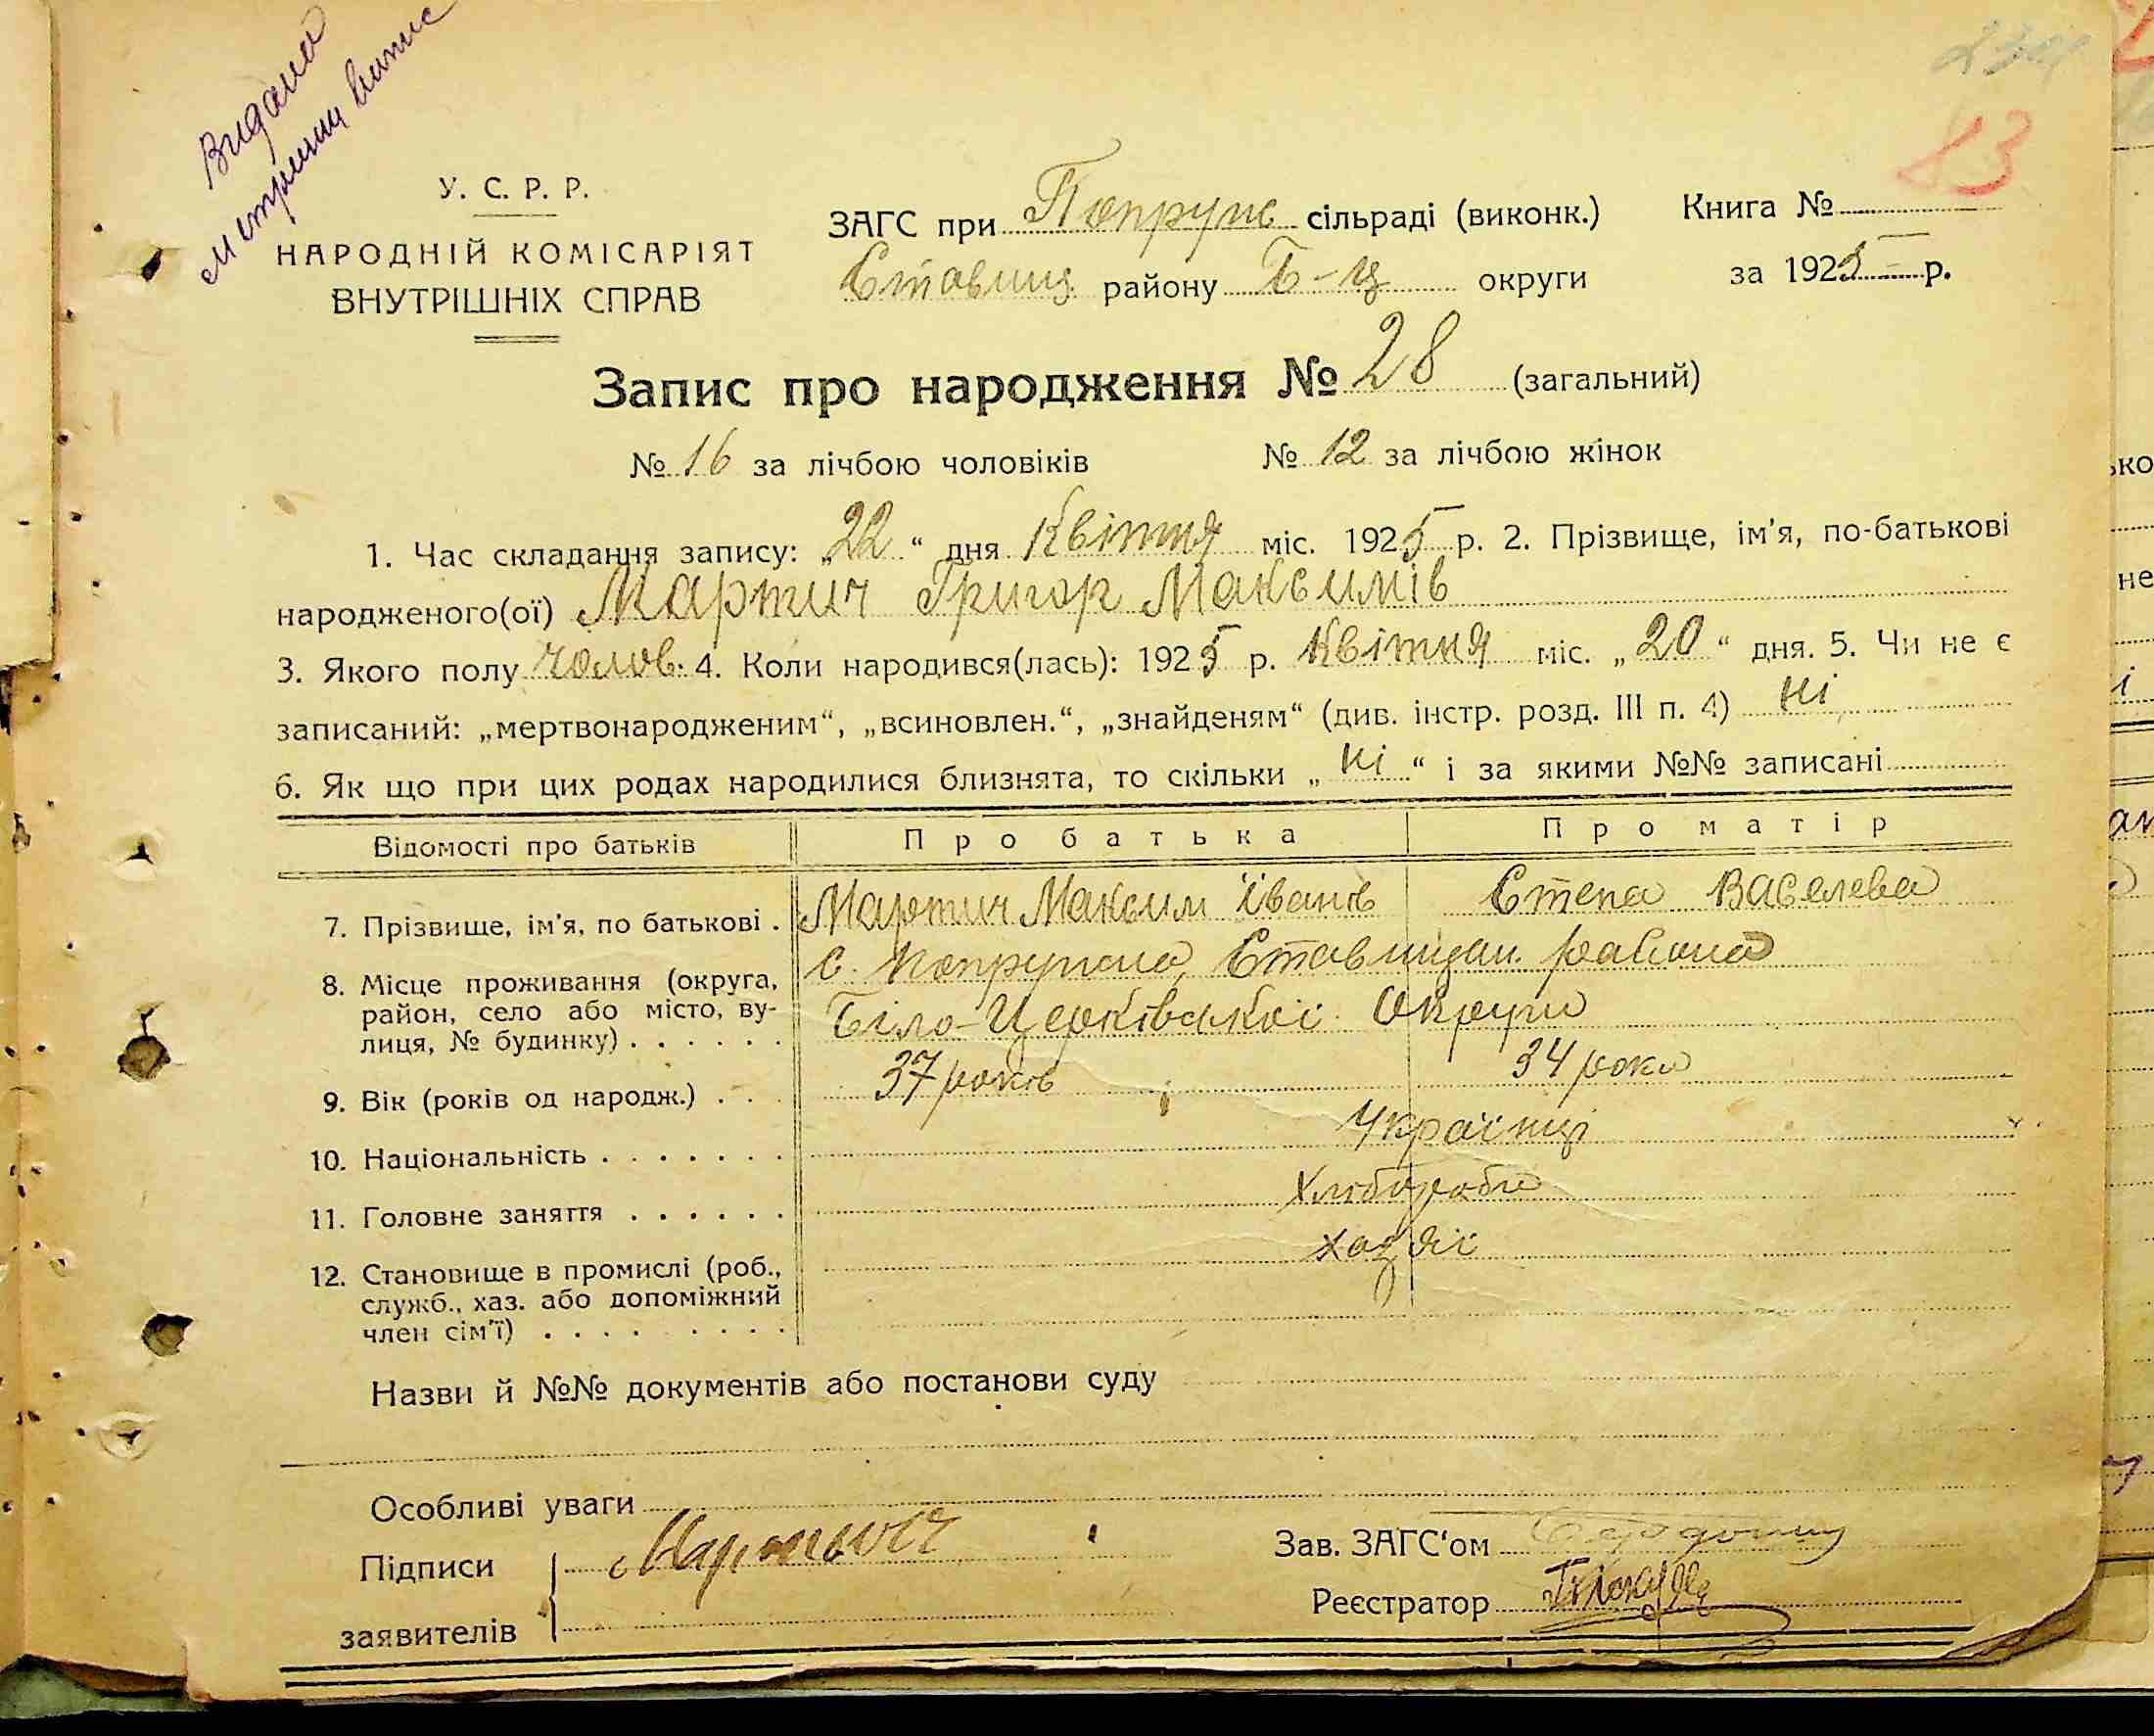 Видана
метричний витяг
13
У. С. Р. Р.
НАРОДНІЙ КОМІСАРІЯТ
ВНУТРІШНІХ СПРАВ
ЗАГС при Попруж сільраді (виконк.) Книга №
Ставищ району Б-Ц округи за 1925 р.
Запис про народження № 28 (загальний)
№ 16 за лічбою чоловіків № 12 за лічбою жінок
1. Час складання запису: „22“ дня Квітня міс. 1925 р. 2. Прізвище, ім'я, по-батькові
народженого(ої) Мартич Григор Максимів
3. Якого полу Чолов. 4. Коли народився(лась): 1925 р. Квітня міс. „20“ дня. 5. Чи не є
записаний: „мертвонародженим“, „всиновлен.“, „знайденям“ (див. інстр. розд. III п. 4) ні
6. Як що при цих родах народилися близнята, то скільки „ні“ і за якими №№ записані
Відомості про батьків Про батька Про матір
7. Прізвище, ім'я, по батькові . Мартич Максим Іванів Степа Василева
8. Місце проживання (округа,
район, село або місто, ву-
лиця, № будинку) . . . . . .
с. Попружна Ставищан. района
Біло-Церківської Округи
9. Вік (років од народж.) . . . 37 років 34 роки
10. Національність . . . . . . . Українці
11. Головне заняття . . . . . . Хлібороби
12. Становище в промислі (роб.,
служб., хаз. або допоміжний
член сім'ї) . . . . . . . .
хазяї
Назви й №№ документів або постанови суду
Особливі уваги
Підписи Мартич
заявителів
Зав. ЗАГС'ом
Реєстратор